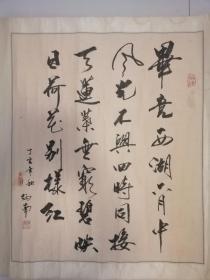 畢竟西湖六月中
風光不與四時同接
天蓮葉無窮碧映
日荷花別樣紅